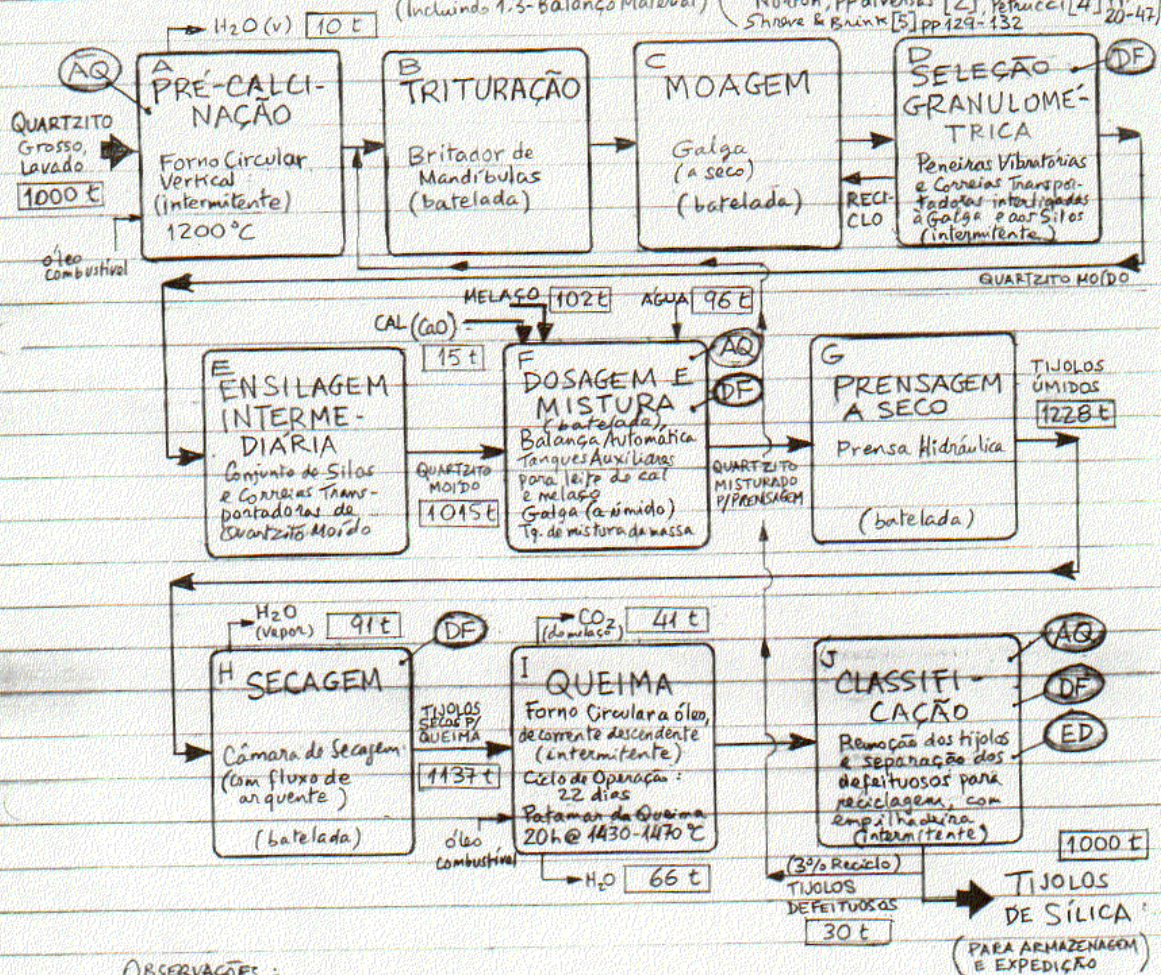 (Incluindo 1.3-Balanço Material)
Norton, pp diversas [2], Petrucci [4] pp
20-47)
Shreve & Brink [5] pp 129-132
H₂O (v) 10 t
AQ
A
PRÉ-CALCI-
NAÇÃO
Forno Circular
Vertical
(intermitente)
1200 °C
QUARTZITO
Grosso,
Lavado
1000 t
óleo
combustível
B
TRITURAÇÃO
Britador de
Mandíbulas
(batelada)
C
MOAGEM
Galga
(a seco)
(batelada)
RECI-
CLO
D
SELEÇÃO
GRANULOMÉ-
TRICA
Peneiras Vibratórias
e Correias Transpor-
tadoras interligadas
à Galga e aos Silos
(intermitente)
DF
QUARTZITO MOÍDO
E
ENSILAGEM
INTERME-
DIÁRIA
Conjunto de Silos
e Correias Trans-
portadoras de
Quartzito Moído
QUARTZITO
MOÍDO
1015 t
MELAÇO 102 t
ÁGUA 96 t
CAL (CaO)
15 t
F
DOSAGEM E
MISTURA
(batelada),
Balança Automática
Tanques Auxiliares
para leite de cal
e melaço
Galga (a úmido)
Tq. de mistura da massa
AQ
DF
QUARTZITO
MISTURADO
P/PRENSAGEM
G
PRENSAGEM
A SECO
Prensa Hidráulica
(batelada)
TIJOLOS
ÚMIDOS
1228 t
H₂O
(vapor)
91 t
DF
H
SECAGEM
Câmara de Secagem
(com fluxo de
ar quente)
(batelada)
TIJOLOS
SECOS P/
QUEIMA
1137 t
CO₂
(do melaço)
41 t
I
QUEIMA
Forno Circular a óleo,
de corrente descendente
(intermitente)
Ciclo de Operação:
22 dias
Patamar da Queima
20h @ 1430-1470 °C
óleo
combustível
H₂O 66 t
J
CLASSIFI-
CAÇÃO
Remoção dos tijolos
e separação dos
defeituosos para
reciclagem, com
empilhadeira
(intermitente)
AQ
DF
ED
(3% Reciclo)
TIJOLOS
DEFEITUOSOS
30 t
1000 t
TIJOLOS
DE SÍLICA:
(PARA ARMAZENAGEM
E EXPEDIÇÃO
OBSERVAÇÕES: